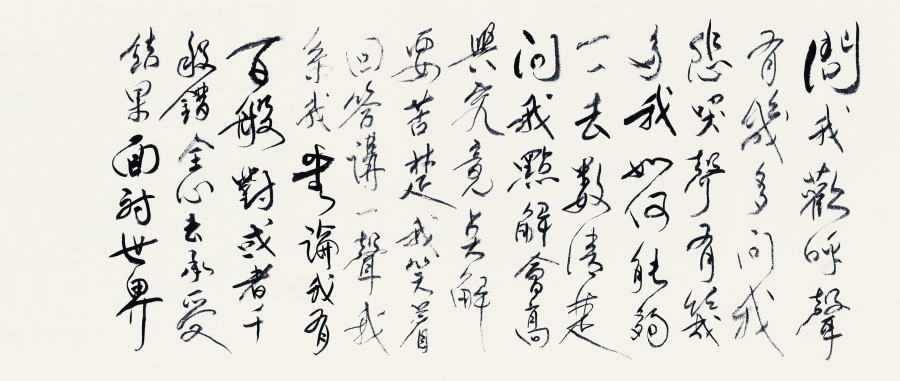 問我歡呼聲
有幾多問我
悲哭聲有幾
多我如何能夠
一一去數清楚
問我點解會高
興究竟點解
要苦楚我笑着
回答講一聲我
係我無論我有
百般對或者千
般錯全心去承受
結果面對世界